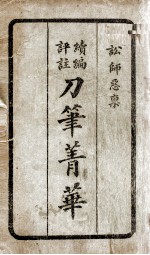 訟師惡稟
續編
評註
刀筆菁華